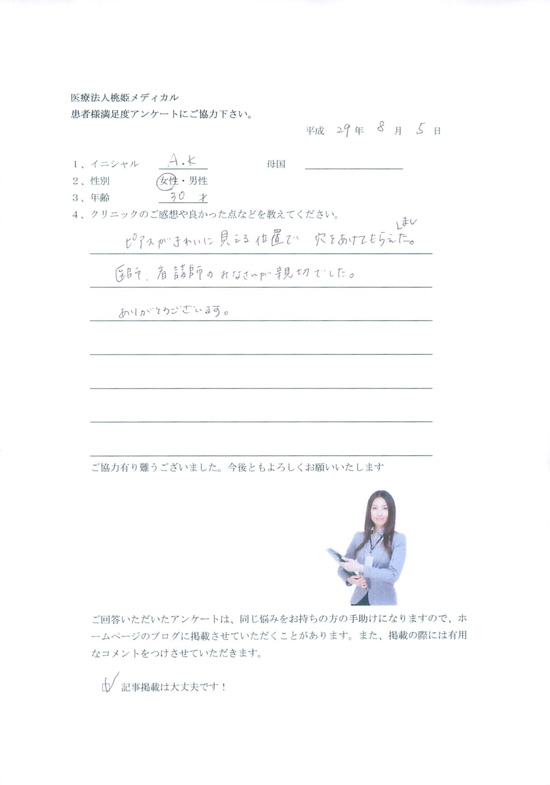 医療法人桃姫メディカル
患者様満足度アンケートにご協力下さい。
平成 29 年 8 月 5 日
1、イニシャル A.K 母国
2、性別 女性・男性
3、年齢 30 才
4、クリニックのご感想や良かった点などを教えてください。
ピアスがきれいに見える位置で 穴をあけてもらえました。
医師、看護師のみなさんが親切でした。
ありがとうございます。
ご協力有り難うございました。今後ともよろしくお願いいたします
ご回答いただいたアンケートは、同じ悩みをお持ちの方の手助けになりますので、ホ
ームページのブログに掲載させていただくことがあります。また、掲載の際には有用
なコメントをつけさせていただきます。
記事掲載は大丈夫です！